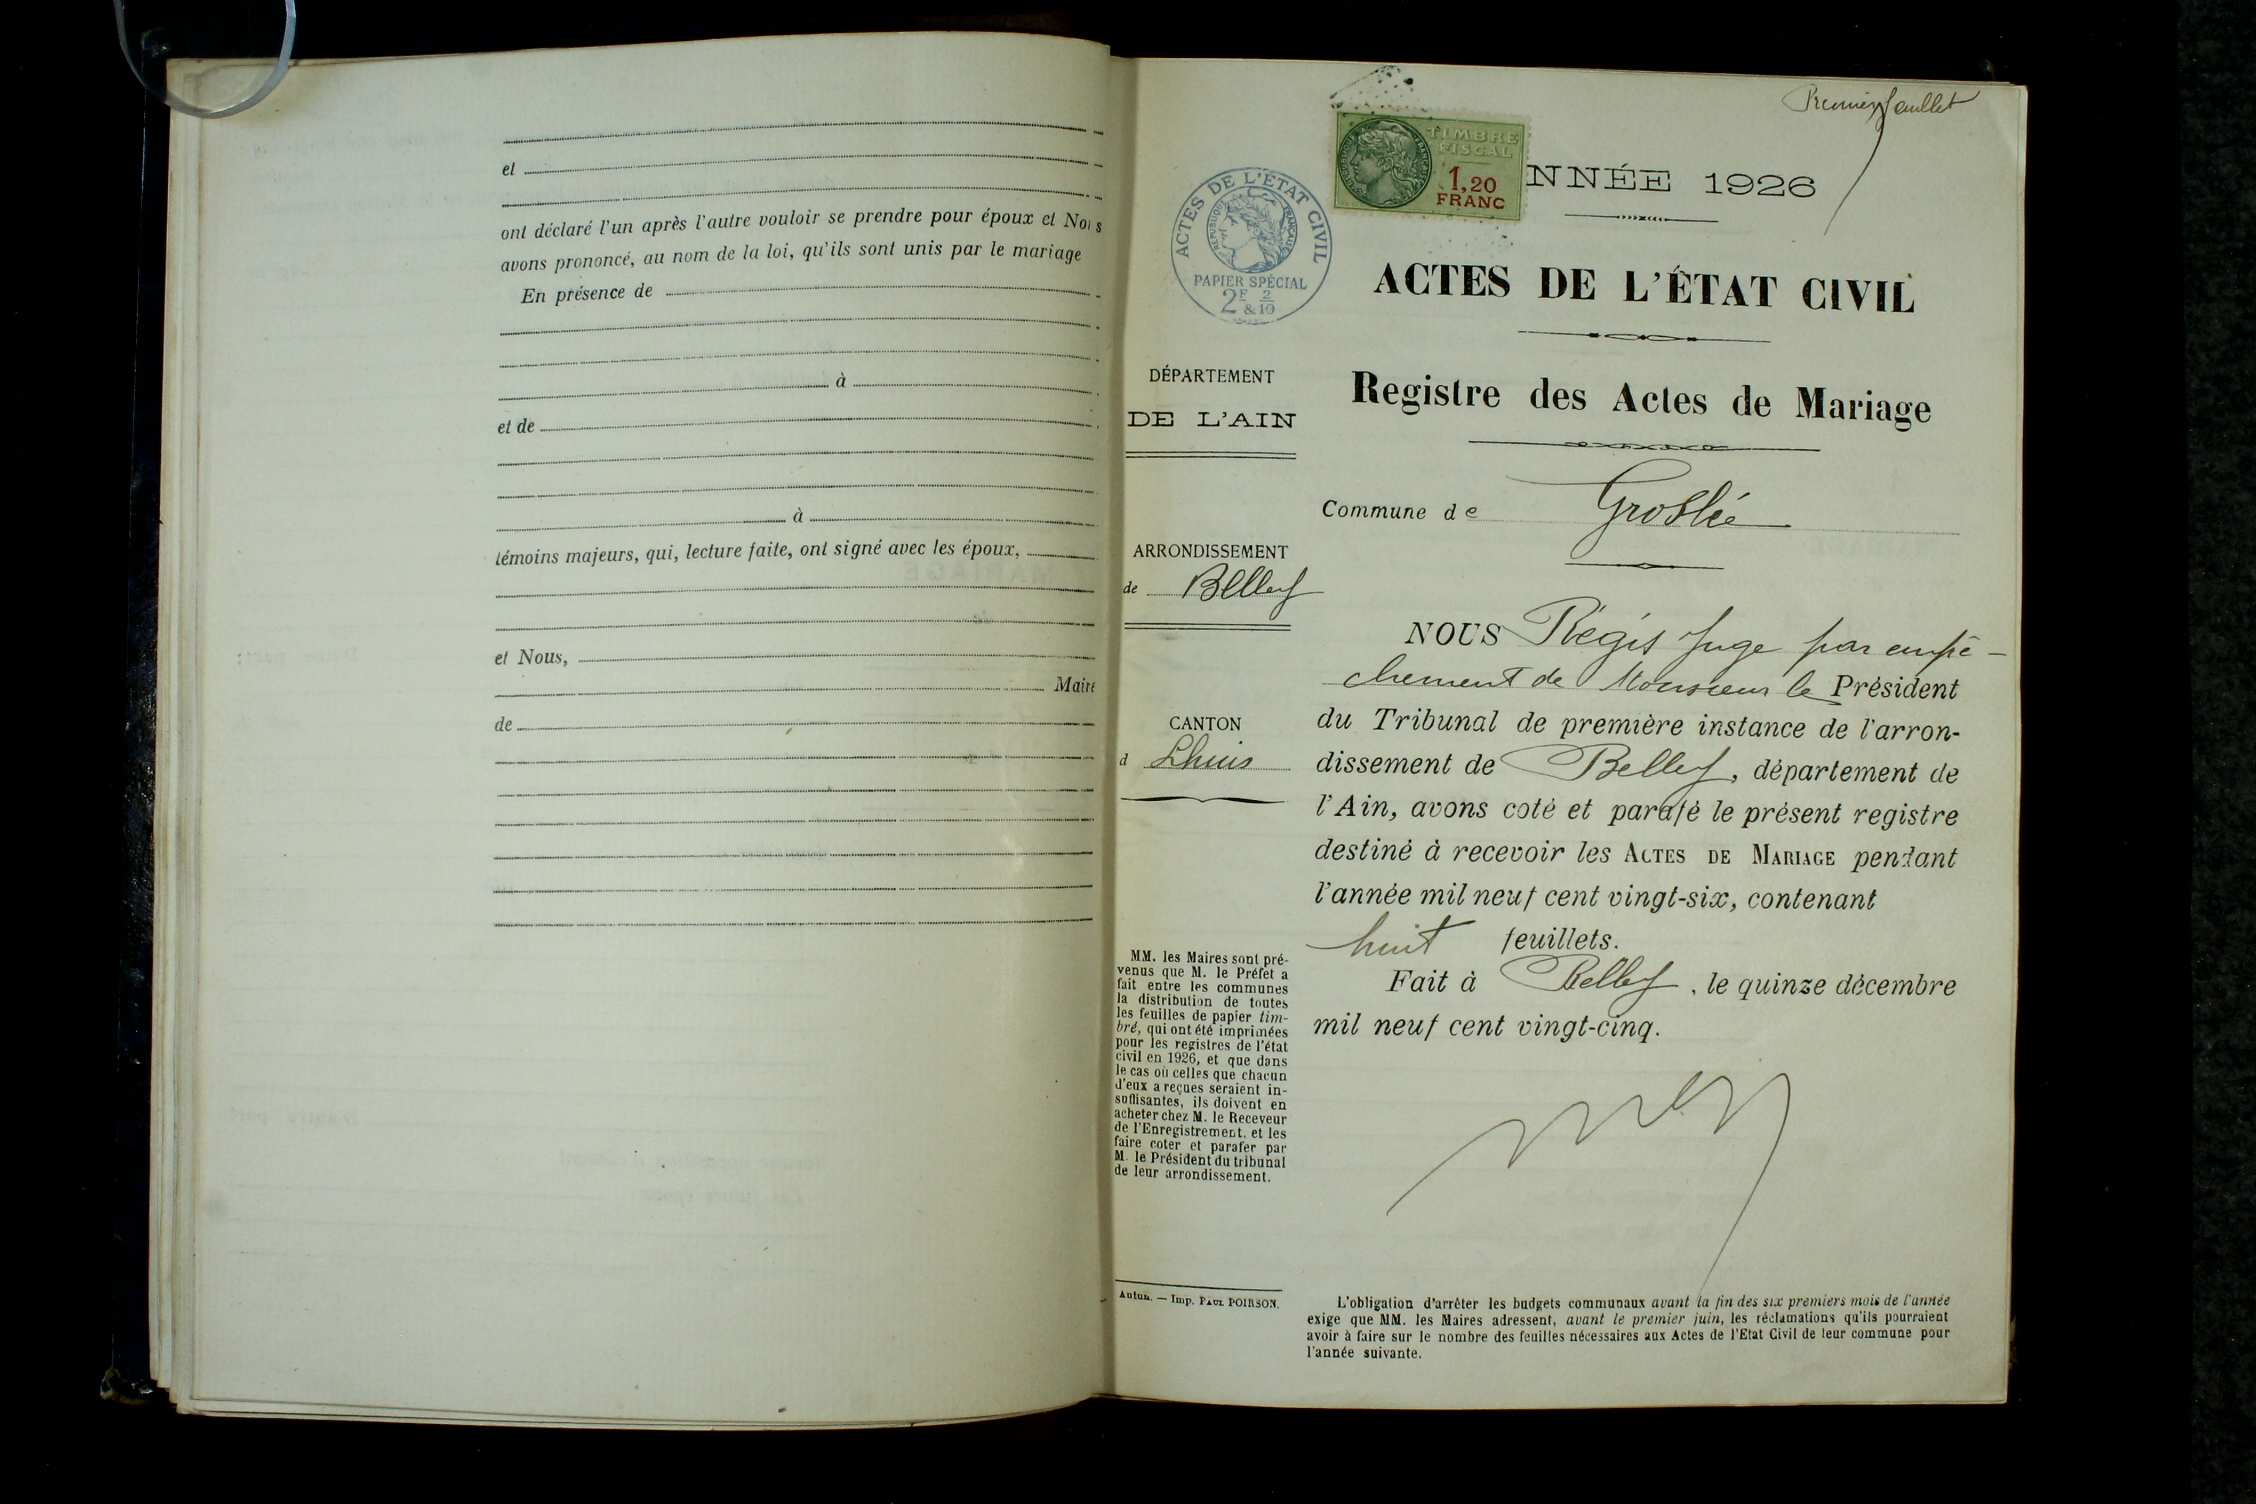 et
ont déclaré l'un après l'autre vouloir se prendre pour époux et Nous
avons prononcé, au nom de la loi, qu'ils sont unis par le mariage
En présence de
à
et de
à
témoins majeurs, qui, lecture faite, ont signé avec les époux,
et Nous,
Maire
de
Premier feuillet
TIMBRE
FISCAL
1,20
FRANC
NNÉE 1926
ACTES DE L'ÉTAT CIVIL
RÉPUBLIQUE FRANÇAISE
PAPIER SPÉCIAL
2F & 2/10
ACTES DE L'ÉTAT CIVIL
Registre des Actes de Mariage
Commune de Groslée
DÉPARTEMENT
DE L'AIN
ARRONDISSEMENT
de Belley
CANTON
d Lhuis
NOUS Régis Juge par empê-
chement de Monsieur le Président
du Tribunal de première instance de l'arron-
dissement de Belley, département de
l'Ain, avons coté et parafé le présent registre
destiné à recevoir les ACTES DE MARIAGE pendant
l'année mil neuf cent vingt-six, contenant
huit feuillets.
Fait à Belley, le quinze décembre
mil neuf cent vingt-cinq.
MM. les Maires sont pré-
venus que M. le Préfet a
fait entre les communes
la distribution de toutes
les feuilles de papier tim-
bré, qui ont été imprimées
pour les registres de l'état
civil en 1926, et que dans
le cas où celles que chacun
d'eux a reçues seraient in-
suffisantes, ils doivent en
acheter chez M. le Receveur
de l'Enregistrement, et les
faire coter et parafer par
M. le Président du tribunal
de leur arrondissement.
Autun. — Imp. PAUL POIRSON.
L'obligation d'arrêter les budgets communaux avant la fin des six premiers mois de l'année
exige que MM. les Maires adressent, avant le premier juin, les réclamations qu'ils pourraient
avoir à faire sur le nombre des feuilles nécessaires aux Actes de l'Etat Civil de leur commune pour
l'année suivante.